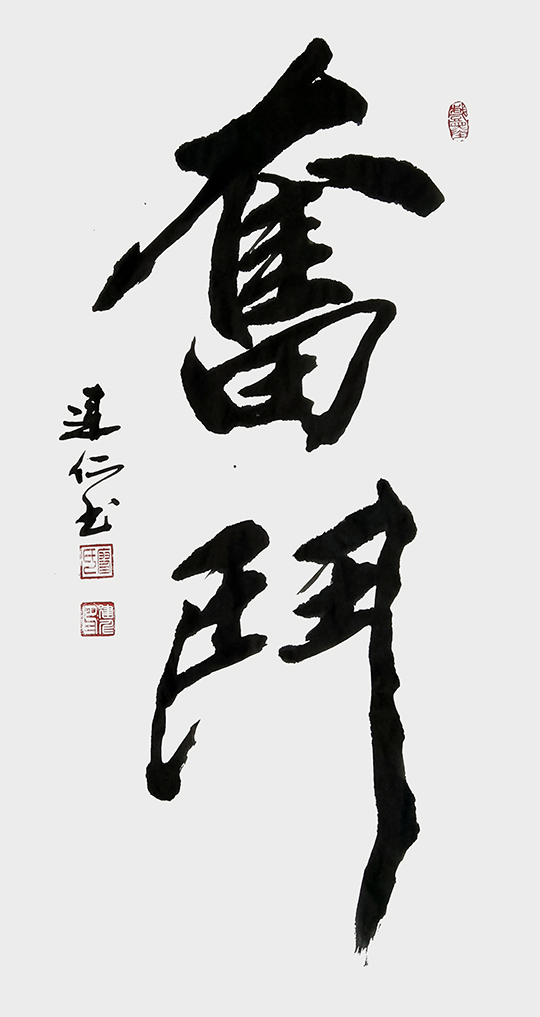 奮鬥
建仁书